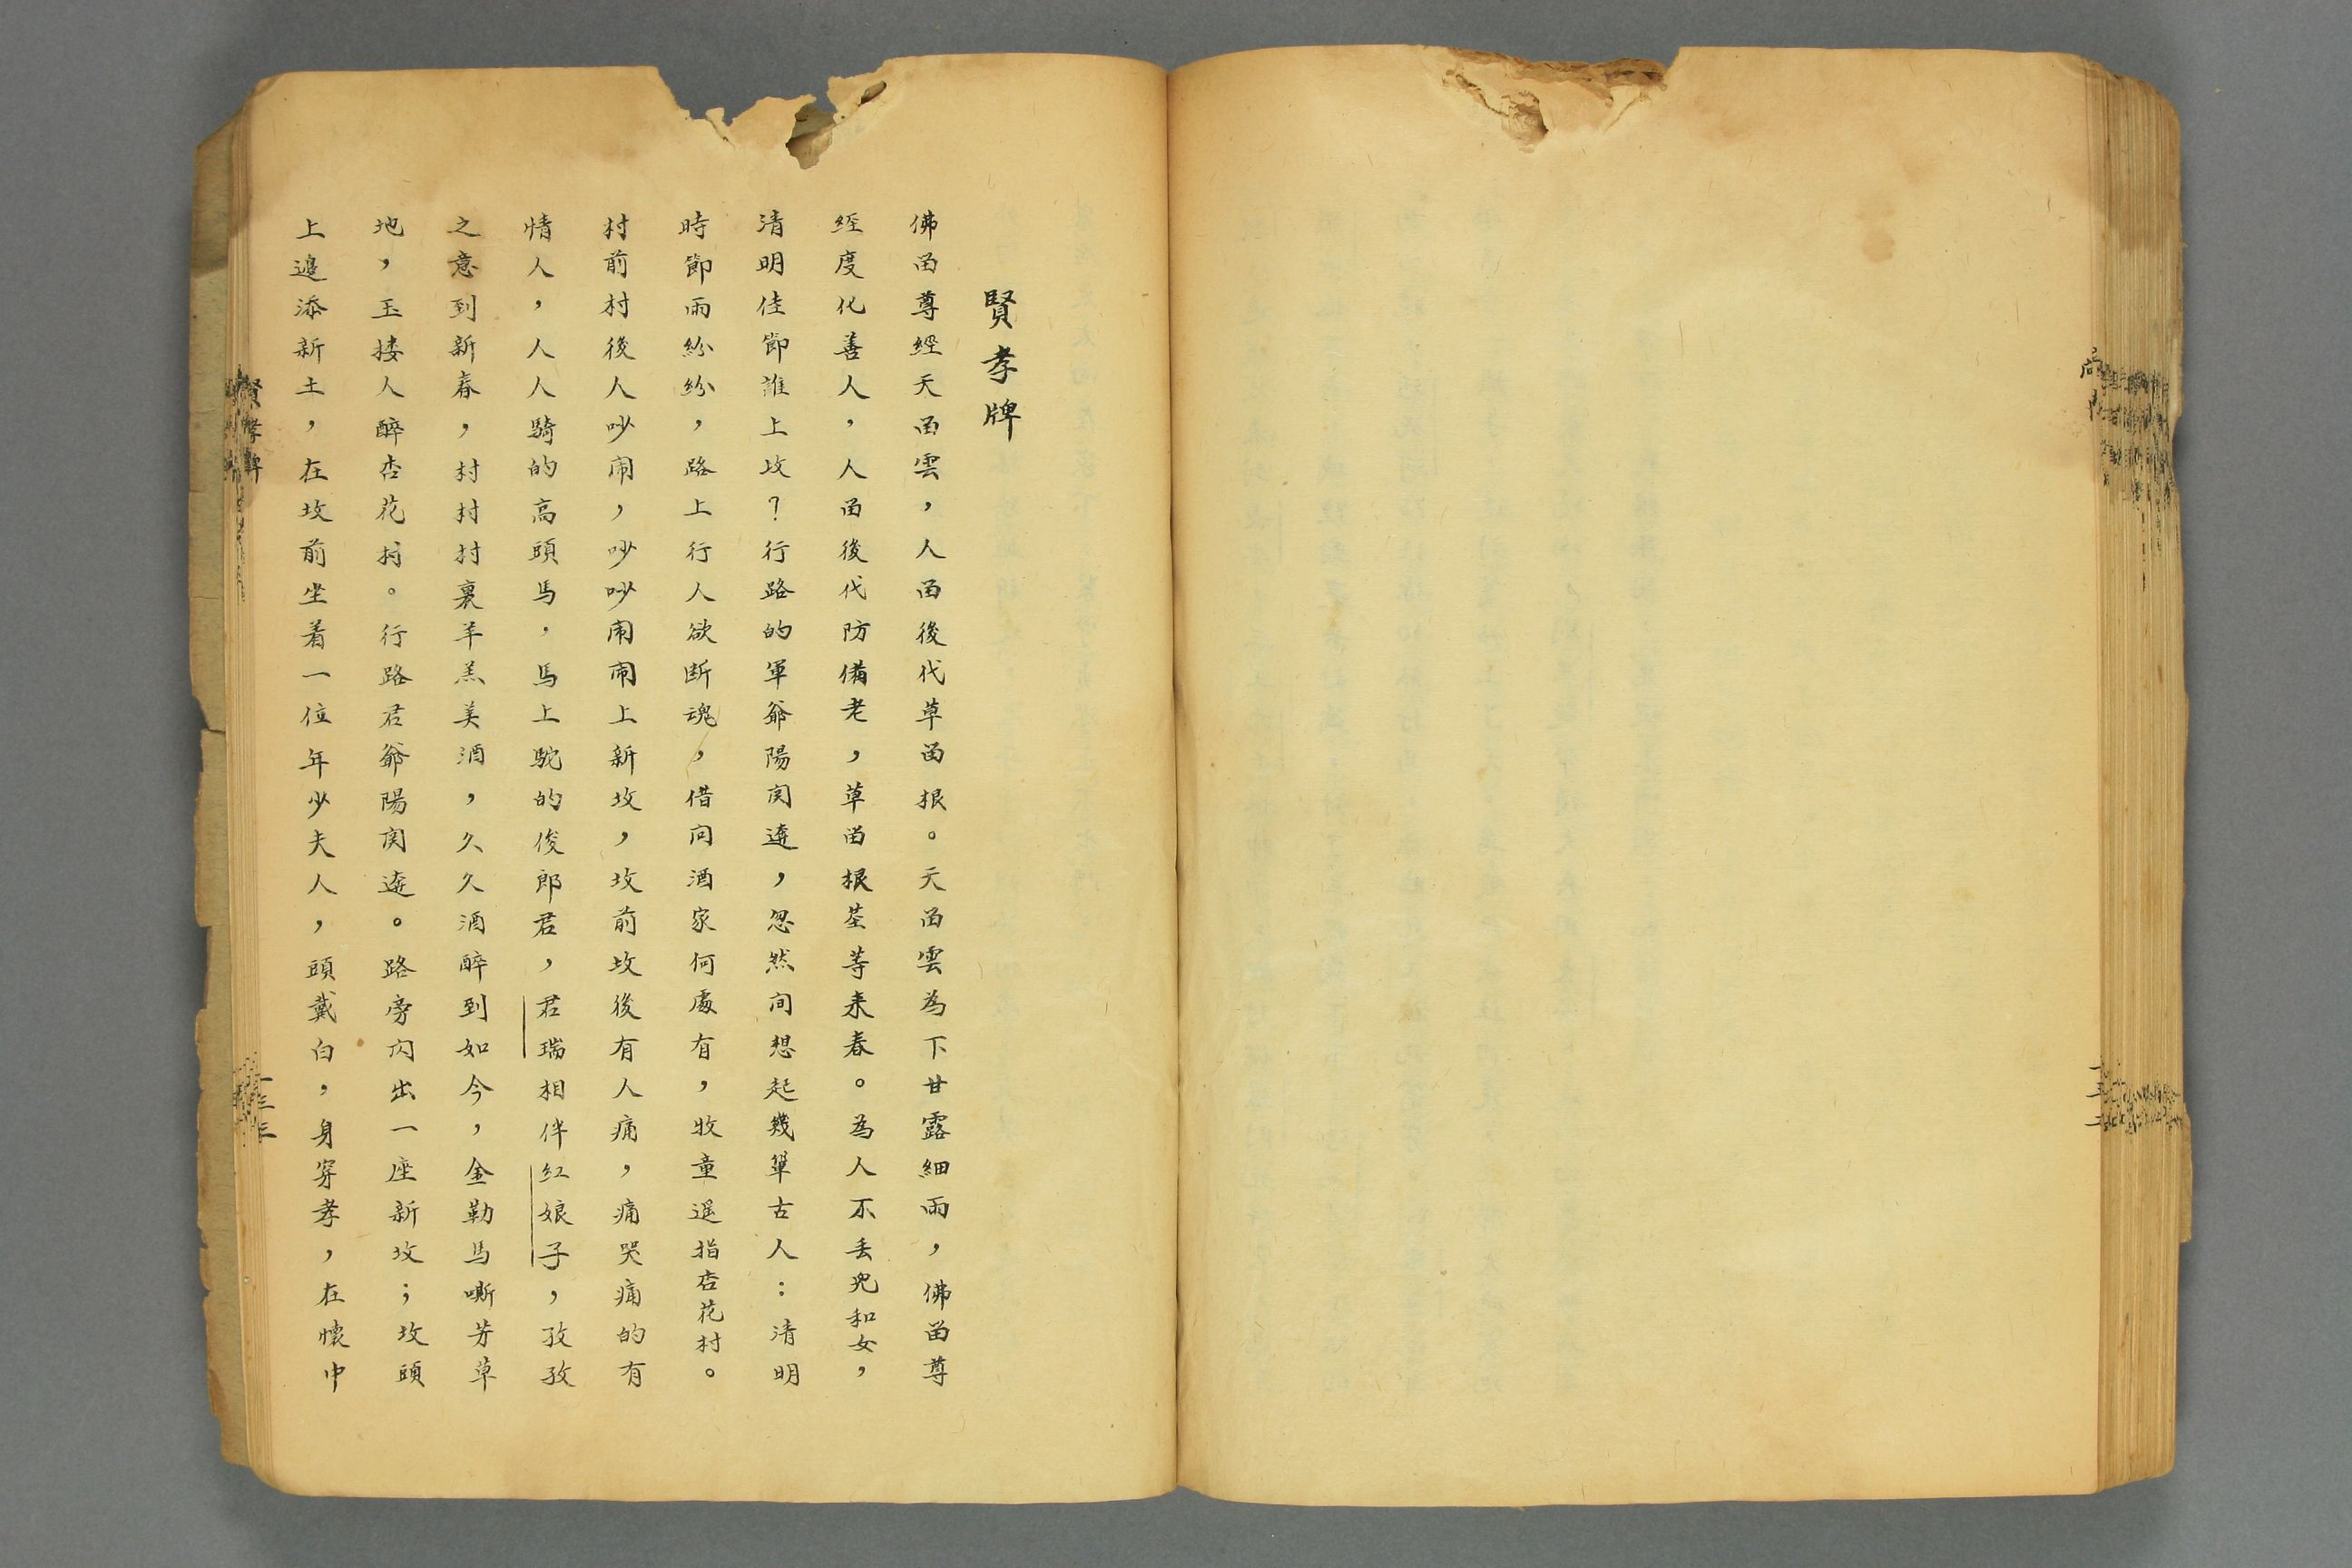 賢孝牌
佛畄尊經天畄雲，人畄後代草畄根。天畄雲為下甘露細雨，佛畄尊
經度化善人，人畄後代防備老，草畄根荃等来春。為人不丢兒和女，
清明佳節誰上坟？行路的軍爺陽関遶，忽然间想起幾輩古人：清明
時節雨紛紛，路上行人欲断魂，借问酒家何處有，牧童遥指杏花村。
村前村後人吵闹，吵吵闹闹上新坟，坟前坟後有人痛，痛哭痛的有
情人，人人騎的高頭馬，馬上駝的俊郎君，君瑞相伴红娘子，孜孜
之意到新春，村村村裏羊羔美酒，久久酒醉到如今，金勒馬嘶芳草
地，玉搂人醉杏花村。行路君爺陽関遶。路旁闪出一座新坟；坟頭
上邉添新土，在坟前坐着一位年少夫人，頭戴白，身穿孝，在懷中
賢孝牌
一三三